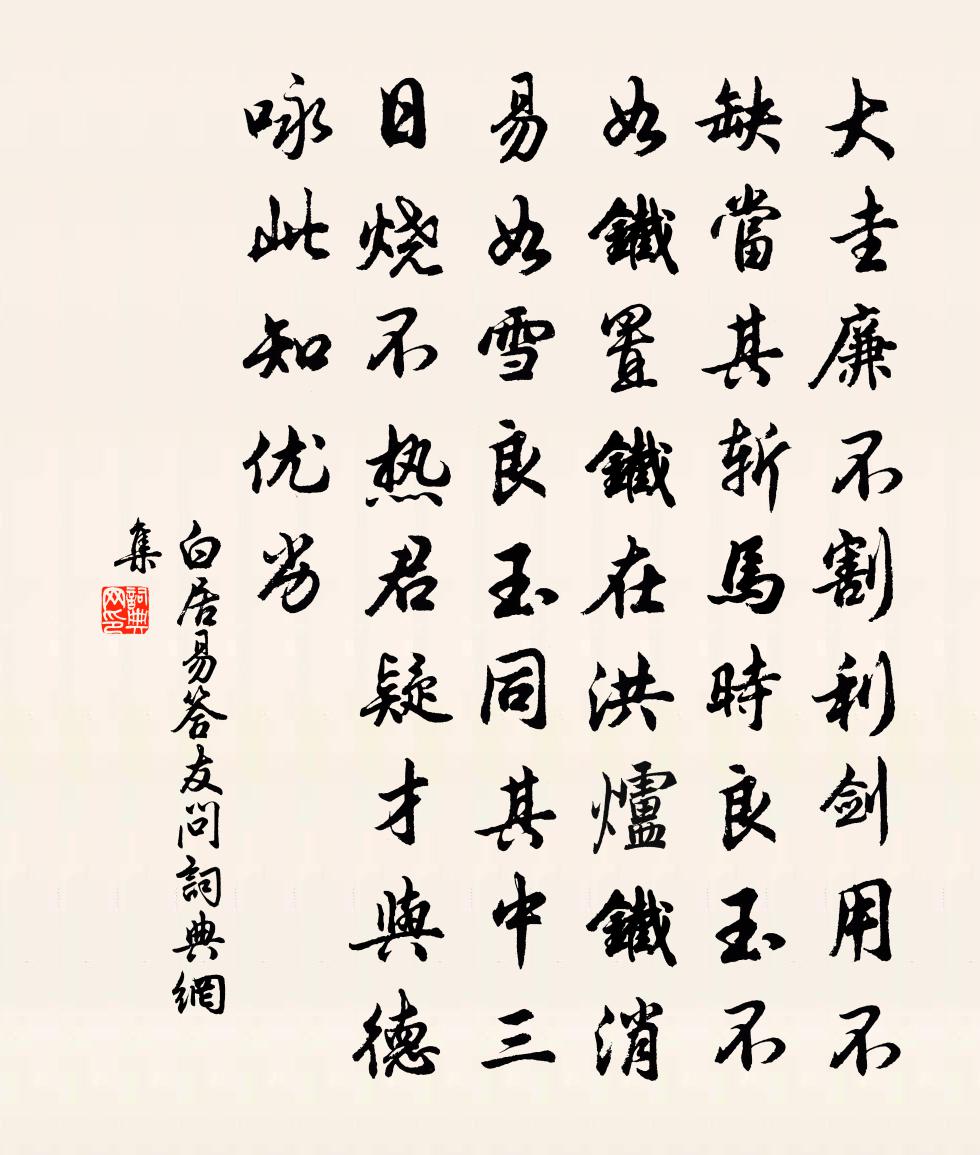 大圭廉不割利剑用不
缺當其斩馬時良玉不
如鐵置鐵在洪爐鐵消
易如雪良玉同其中三
日烧不热君疑才與德
咏此知优劣
白居易答友問詞典網
集
詞典网印